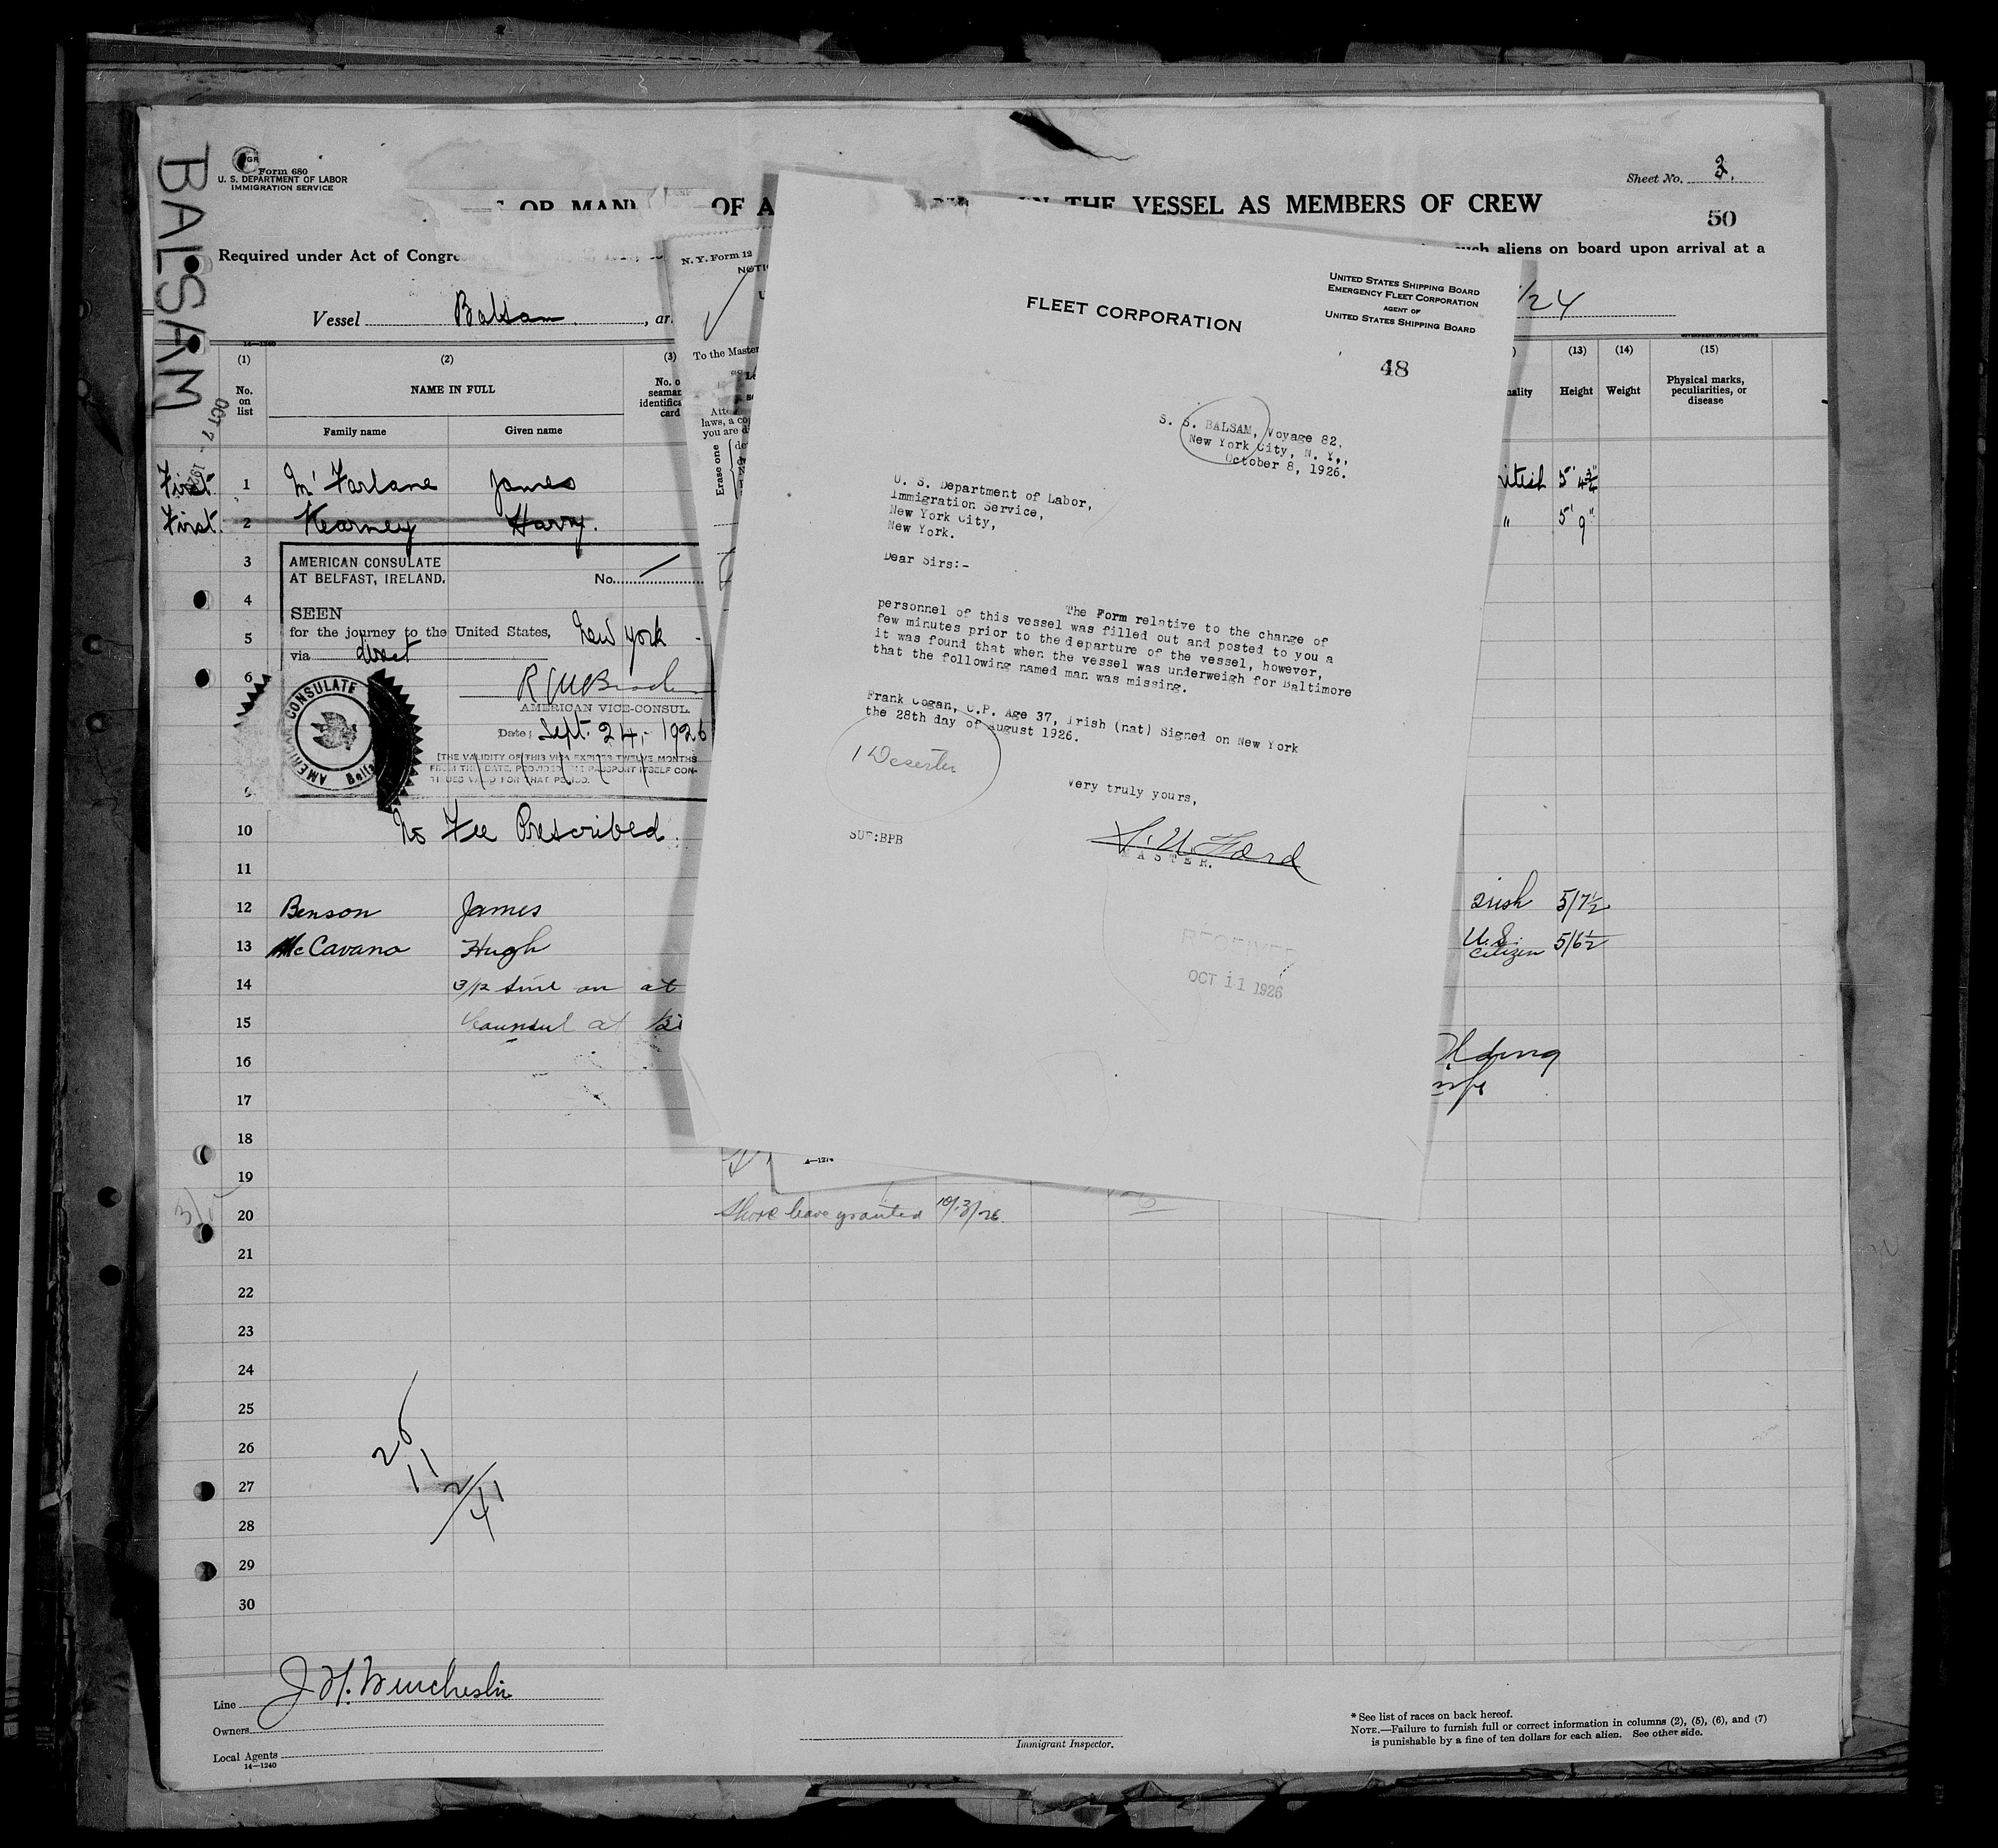 BALSAM
OCT 7 - 192
Form 680
U. S. DEPARTMENT OF LABOR
IMMIGRATION SERVICE
Sheet No. 2.
OF A THE VESSEL AS MEMBERS OF CREW
50
Required under Act of Congre
such aliens on board upon arrival at a
Vessel Balsam , ar
/24
14—1240
(1) (2) (3) (13) (14) (15)
No. on list
NAME IN FULL
Family name Given name
No. o
seaman
identifica
card
ality Height Weight Physical marks, peculiarities, or disease
First 1 McFarlane James ritish 5' 4¾"
First 2 Kearney Harry. " 5' 9"
3
4
5
6
9
10
11
AMERICAN CONSULATE
AT BELFAST, IRELAND.
No. /
SEEN
for the journey to the United States, New York -
via direct
AMERICAN VICE-CONSUL.
Date; Sept. 24, - 1926
[THE VALIDITY OF THIS VISA EXPIRES TWELVE MONTHS
FROM THIS DATE, PROVIDED THE PASSPORT ITSELF CON-
TINUES VALID FOR THAT PERIOD.
AMERICAN CONSULATE
Belfa
No Fee Prescribed.
12 Benson James Irish 5/7½
13 McCavana Hugh U.S. Citizen 5/6½
14 at
15 at
16
17
18
19
20 Shore leave granted 10/13/26.
21
22
23
24
25
26
27
28
29
30
26
11
2/41
N. Y. Form 12
NOTI
To the Master
Atte
laws, a co
you are d
Erase one
FLEET CORPORATION
UNITED STATES SHIPPING BOARD
EMERGENCY FLEET CORPORATION
AGENT OF
UNITED STATES SHIPPING BOARD
48
S. S. BALSAM, Voyage 82,
New York City, N. Y.,
October 8, 1926.
U. S. Department of Labor,
Immigration Service,
New York City,
New York.
Dear Sirs:-
The Form relative to the change of
personnel of this vessel was filled out and posted to you a
few minutes prior to the departure of the vessel, however,
it was found that when the vessel was underweigh for Baltimore
that the following named man was missing.
Frank Cogan, C.P. Age 37, Irish (nat) Signed on New York
the 28th day of August 1926.
1 Deserter
Very truly yours,
MASTER.
SUF:BPB
RECEIVED
OCT 11 1926
Line J. H. Winchester
Owners
Local Agents
14—1240
Immigrant Inspector.
* See list of races on back hereof.
NOTE.—Failure to furnish full or correct information in columns (2), (5), (6), and (7)
is punishable by a fine of ten dollars for each alien. See other side.